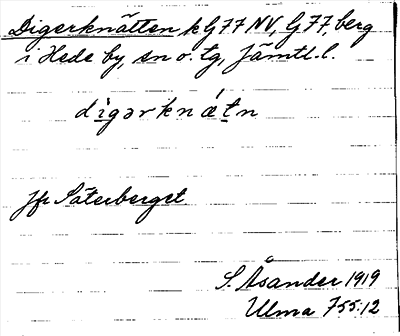 Digerknätten k G77 NV, G77, berg
i Hede by, sn o. tg, Jämtl. l.
digərknátn
Jfr Säterberget
S. Åsander 1919
Ulma 755:12